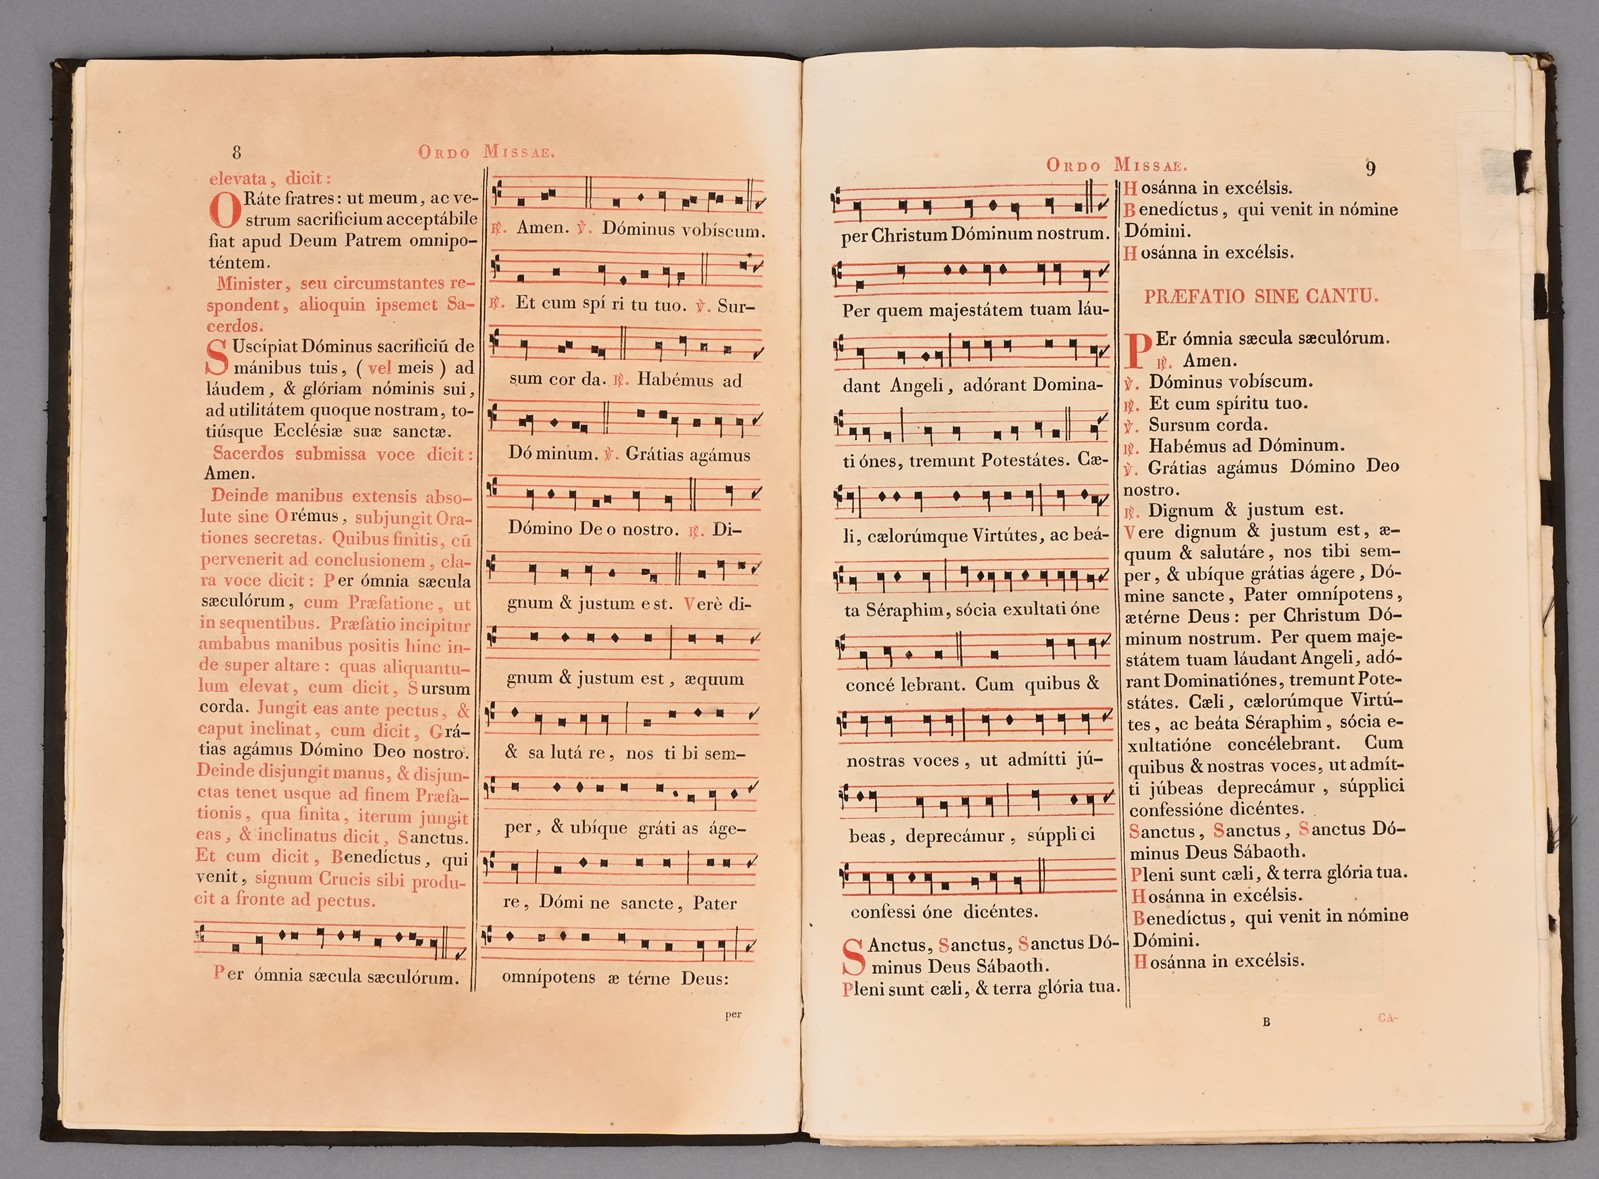 8
ORDO MISSAE.
elevata, dicit:
ORáte fratres: ut meum, ac ve-
strum sacrificium acceptábile
fiat apud Deum Patrem omnipo-
téntem.
Minister, seu circumstantes re-
spondent, alioquin ipsemet Sa-
cerdos.
SUscípiat Dóminus sacrificiū de
mánibus tuis, ( vel meis ) ad
láudem, & glóriam nóminis sui,
ad utilitátem quoque nostram, to-
tiúsque Ecclésiæ suæ sanctæ.
Sacerdos submissa voce dicit:
Amen.
Deinde manibus extensis abso-
lute sine Orémus, subjungit Ora-
tiones secretas. Quibus finitis, cū
pervenerit ad conclusionem, cla-
ra voce dicit: Per ómnia sæcula
sæculórum, cum Præfatione, ut
in sequentibus. Præfatio incipitur
ambabus manibus positis hinc in-
de super altare: quas aliquantu-
lum elevat, cum dicit, Sursum
corda. Jungit eas ante pectus, &
caput inclinat, cum dicit, Grá-
tias agámus Dómino Deo nostro.
Deinde disjungit manus, & disjun-
ctas tenet usque ad finem Præfa-
tionis, qua finita, iterum jungit
eas, & inclinatus dicit, Sanctus.
Et cum dicit, Benedíctus, qui
venit, signum Crucis sibi produ-
cit a fronte ad pectus.
Per ómnia sæcula sæculórum.
℟. Amen. ℣. Dóminus vobíscum.
℟. Et cum spí ri tu tuo. ℣. Sur-
sum cor da. ℟. Habémus ad
Dó minum. ℣. Grátias agámus
Dómino De o nostro. ℟. Di-
gnum & justum e st. Verè di-
gnum & justum est, æquum
& sa lutá re, nos ti bi sem-
per, & ubíque gráti as áge-
re, Dómi ne sancte, Pater
omnípotens æ térne Deus:
per
ORDO MISSAE.
9
per Christum Dóminum nostrum.
Per quem majestátem tuam láu-
dant Angeli, adórant Domina-
ti ónes, tremunt Potestátes. Cæ-
li, cælorúmque Virtútes, ac beá-
ta Séraphim, sócia exultati óne
concé lebrant. Cum quibus &
nostras voces, ut admítti jú-
beas, deprecámur, súppli ci
confessi óne dicéntes.
SAnctus, Sanctus, Sanctus Dó-
minus Deus Sábaoth.
Pleni sunt cæli, & terra glória tua.
Hosánna in excélsis.
Benedíctus, qui venit in nómine
Dómini.
Hosánna in excélsis.
PRÆFATIO SINE CANTU.
PEr ómnia sæcula sæculórum.
℟. Amen.
℣. Dóminus vobíscum.
℟. Et cum spíritu tuo.
℣. Sursum corda.
℟. Habémus ad Dóminum.
℣. Grátias agámus Dómino Deo
nostro.
℟. Dignum & justum est.
Vere dignum & justum est, æ-
quum & salutáre, nos tibi sem-
per, & ubíque grátias ágere, Dó-
mine sancte, Pater omnípotens,
ætérne Deus: per Christum Dó-
minum nostrum. Per quem maje-
státem tuam láudant Angeli, adó-
rant Dominatiónes, tremunt Pote-
státes. Cæli, cælorúmque Virtú-
tes, ac beáta Séraphim, sócia e-
xultatióne concélebrant. Cum
quibus & nostras voces, ut admít-
ti júbeas deprecámur, súpplici
confessióne dicéntes.
Sanctus, Sanctus, Sanctus Dó-
minus Deus Sábaoth.
Pleni sunt cæli, & terra glória tua.
Hosánna in excélsis.
Benedíctus, qui venit in nómine
Dómini.
Hosánna in excélsis.
B
CA-